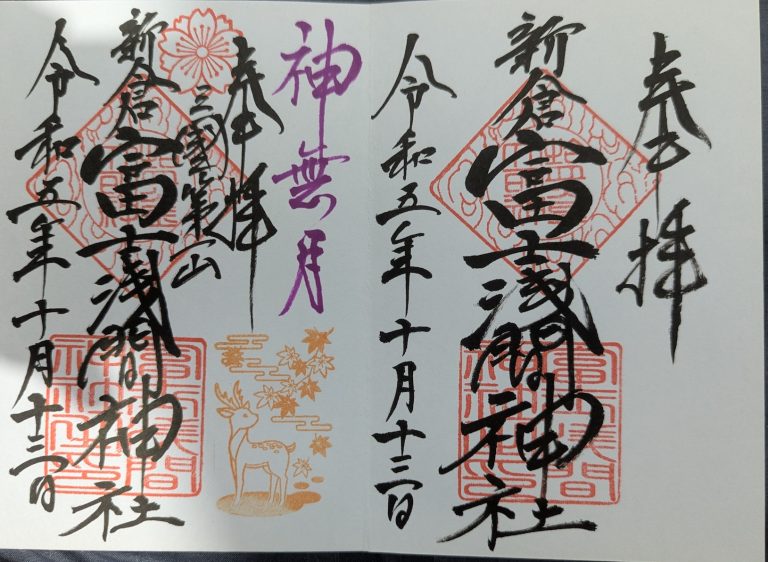 奉拝
新倉富士浅間神社
令和五年十月十三日
神無月
奉拝
三國第一山
新倉富士浅間神社
令和五年十月十三日